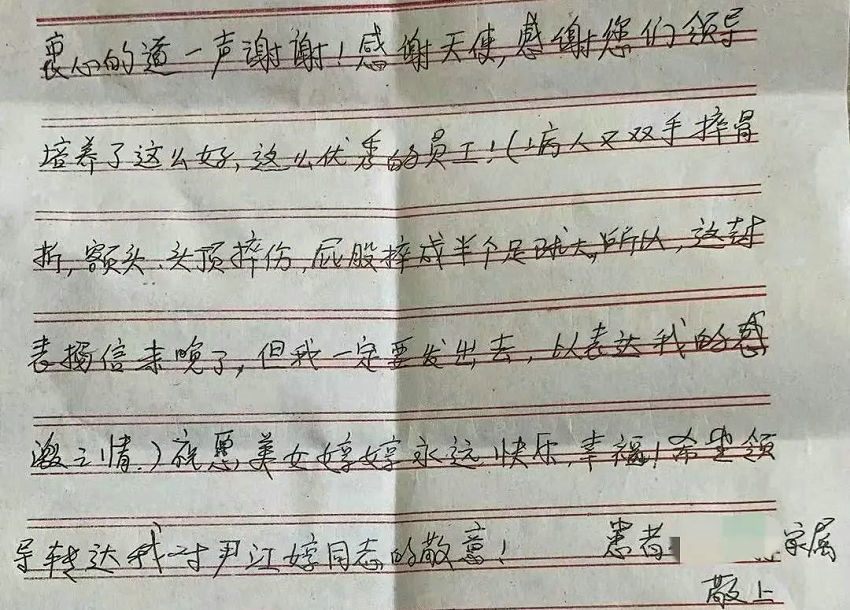 衷心的道一声谢谢！感谢天使，感谢您们领导
培养了这么好，这么优秀的员工！（病人又双手摔骨
折，额头、头顶摔伤，屁股摔成半个足球大，所以，这封
表扬信来晚了，但我一定要发出去，以表达我的感
激之情。）祝愿美女婷婷永远快乐，幸福！希望领
导转达我对尹江婷同志的敬意！ 患者 家属
敬上